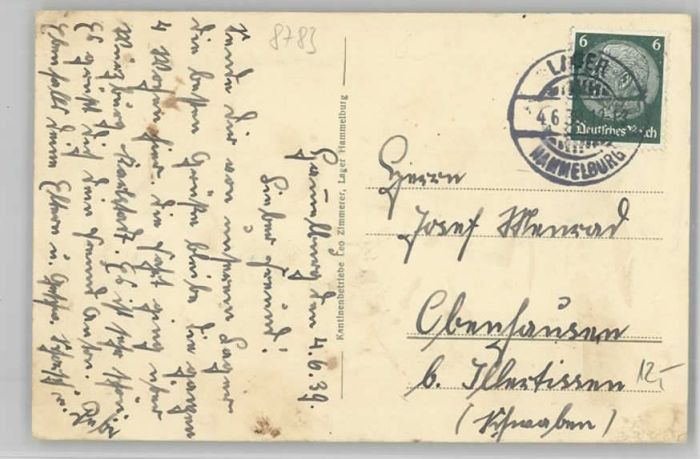 8783
Hammelburg den 4.6.39.
Lieber Freund!
Sende dir von unserem Lager
die besten Grüße bleibe die ganzen
4 Wochen hier. Die Fahrt ging über
Würzburg Karlstadt. Es ist sehr schön
Es grüßt dich dein Freund Anton.
Ebenfalls deine Eltern u.
Kantinenbetriebe Leo Zimmerer, Lager Hammelburg
6 6
Deutsches Reich
LAGER
4.6.3
HAMMELBURG
Herrn
Josef Menrad
Obenhausen
b. Illertissen
(Schwaben)
12,-